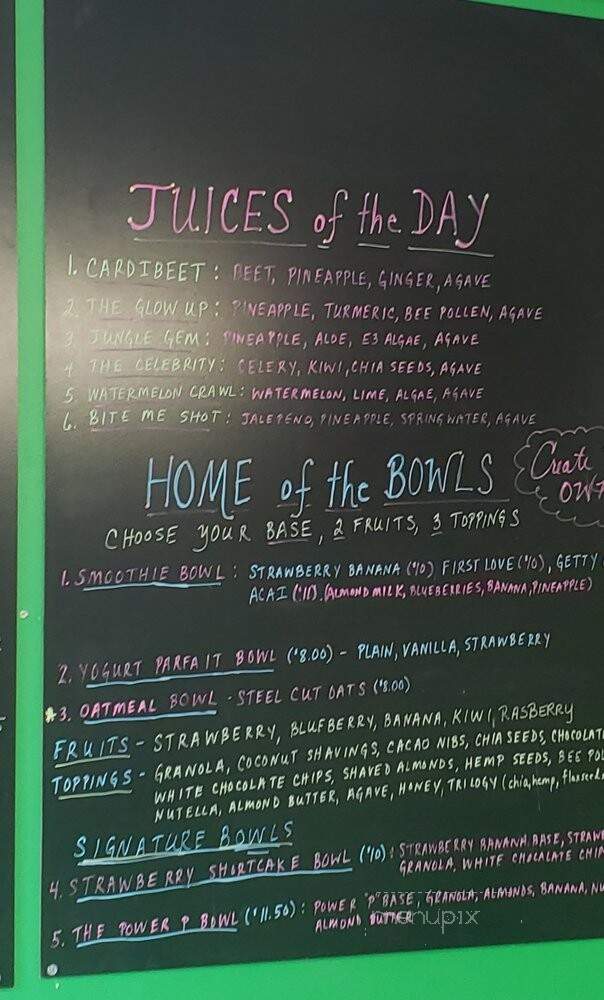 JUICES of the DAY
1. CARDIBEET : BEET, PINEAPPLE, GINGER, AGAVE
2. THE GLOW UP : PINEAPPLE, TURMERIC, BEE POLLEN, AGAVE
3 JUNGLE GEM : PINEAPPLE, ALOE, E3 ALGAE, AGAVE
4 THE CELEBRITY : CELERY, KIWI, CHIA SEEDS, AGAVE
5 WATERMELON CRAWL : WATERMELON, LIME, ALGAE, AGAVE
6. BITE ME SHOT : JALEPENO, PINEAPPLE, SPRING WATER, AGAVE
Create
HOME of the BOWLS
CHOOSE YOUR BASE, 2 FRUITS, 3 TOPPINGS
1. SMOOTHIE BOWL : STRAWBERRY BANANA ($10) FIRST LOVE ($10), GETTY
ACAI ($11). (ALMOND MILK, BLUEBERRIES, BANANA, PINEAPPLE)
2. YOGURT PARFAIT BOWL ($8.00) - PLAIN, VANILLA, STRAWBERRY
*3. OATMEAL BOWL - STEEL CUT OATS ($8.00)
FRUITS - STRAWBERRY, BLUEBERRY, BANANA, KIWI, RASBERRY
TOPPINGS - GRANOLA, COCONUT SHAVINGS, CACAO NIBS, CHIA SEEDS,
WHITE CHOCOLATE CHIPS, SHAVED ALMONDS, HEMP SEEDS, BEE
NUTELLA, ALMOND BUTTER, AGAVE, HONEY, TRILOGY (chia, hemp,
SIGNATURE BOWLS
4. STRAWBERRY SHORTCAKE BOWL ($10) : STRAWBERRY BANANA BASE,
GRANOLA, WHITE CHOCALATE
5. THE POWER P BOWL ($11.50) : POWER "P" BASE, GRANOLA, ALMONDS, BANANA,
ALMOND BUTTER
menupix